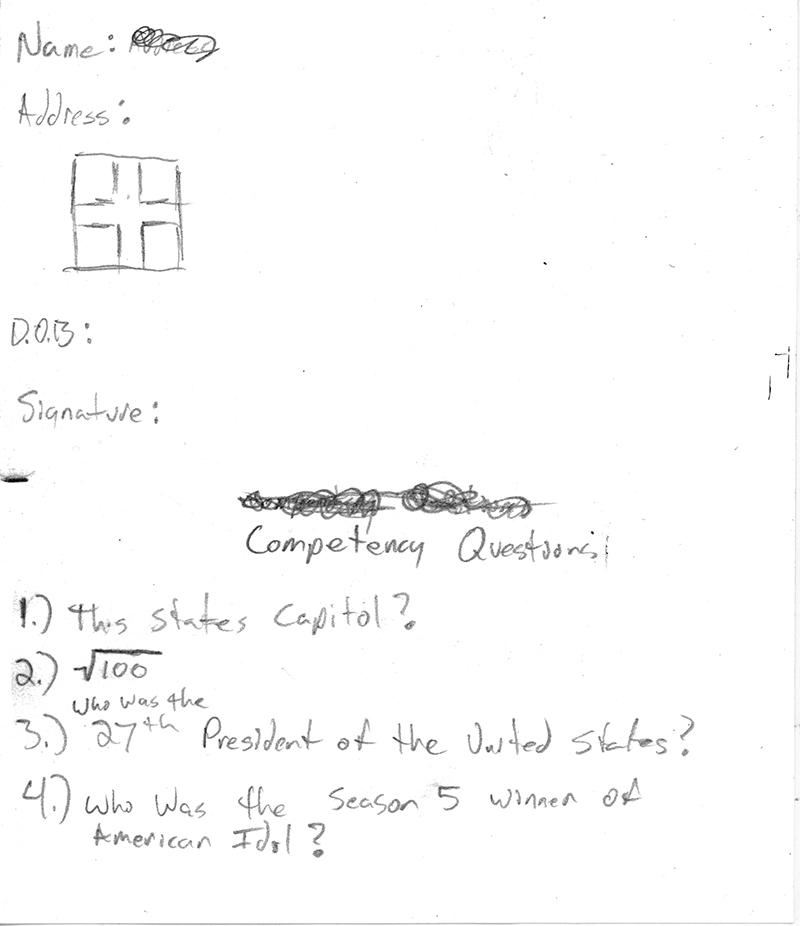 Name:
Address:
D.O.B:
Signature:
Competency Questions:
1.) This states Capitol?
2.) √100
who was the
3.) 27th President of the United States?
4.) who was the Season 5 winner of
American Idol?